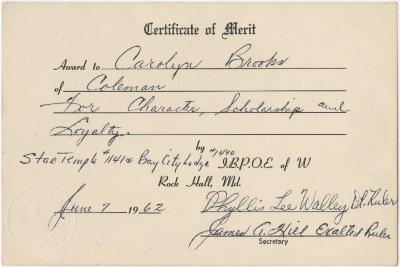 Certificate of Merit
Award to Carolyn Brooks
of Coleman
For Character, Scholarship and
Loyalty.
by #1490
Star Temple #1141 & Bay City Lodge I.B.P.O.E. of W
Rock Hall, Md.
June 7 1962 Phyllis Lee Walley Dt. Ruler
James A. Hill Exalted Ruler
Secretary